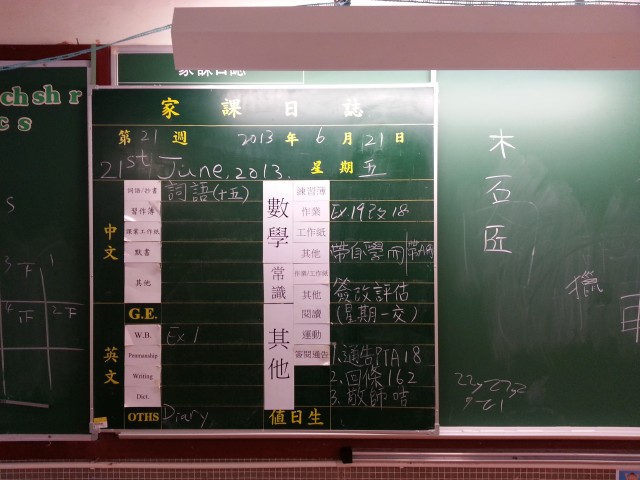 ch sh r
cs
家課日誌
家課日誌
第21週 2013年6月21日
21st June, 2013. 星期五
中文
詞語/抄書 詞語(十五)
習作簿
課業工作紙
默書
其他
G.E.
英文
W.B. Ex 1
Penmanship
Writing
Dict.
OTHS Diary
數學
練習簿
作業 Ex.19改18
工作紙
其他
常識
作業/工作紙
其他 簽改評估
閱讀 (星期一交)
其他
運動
簽閱通告 1.通告PTA18
2.回條162
3.敬師咭
值日生
木
石
匠
獵